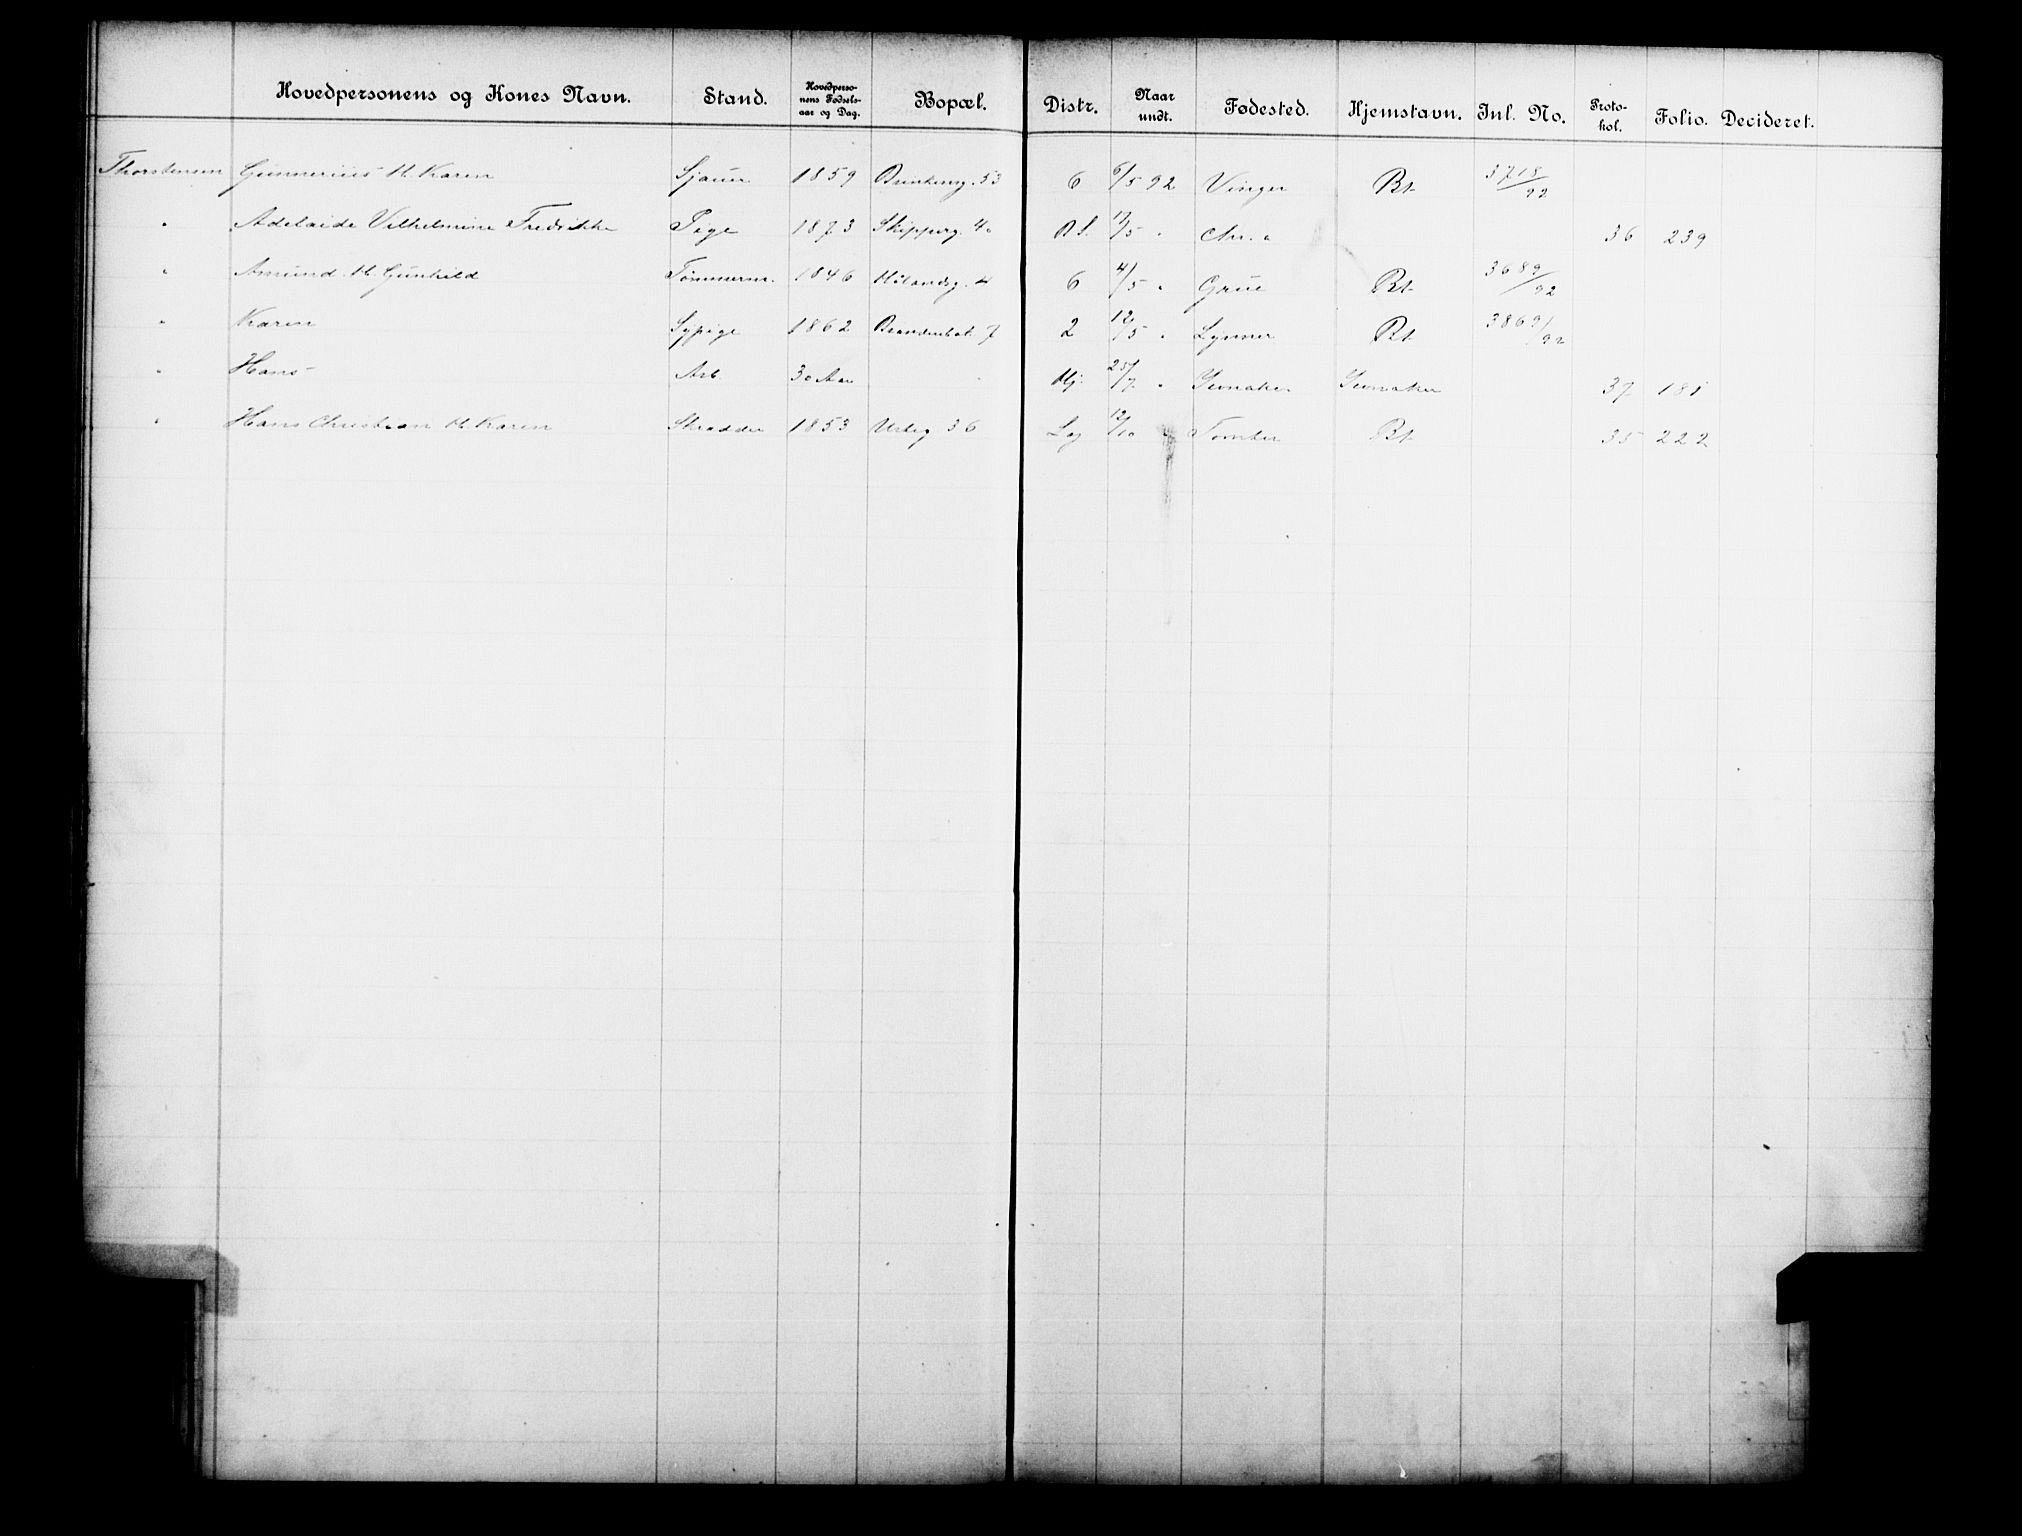 Hovedpersonens og Kones Navn. Stand. Hovedperso-nens Fødsels-aar og Dag. Bopæl. Distr. Naar undt. Fødested. Hjemstavn. Inl. No. Proto-kol. Folio. Decideret.
Thorstensen Gunnerius M. Karen Sjauer 1859 53 6 6/5 92 Vinger Bt 3718/92
" Adelaide Vilhelmine Fredrikke Pige 1873 Skipperg. 4 11/5 " Chr.a 36 239
" Amund M. Gunhild Tømmerm. 1846 Hølandsg. 4 6 4/5 " Grue Bt 3689/92
" Karen Sypige 1862 7 2 12/5 " Lynner Bt 3869/92
" Hans Arb. 30 Aar Hj. 25/7 " Jevnaker Jevnaker 37 181
" Hans Christian M. Karen Skrædder 1853 Urteg 36 12/10 " Tomter Bt 35 222